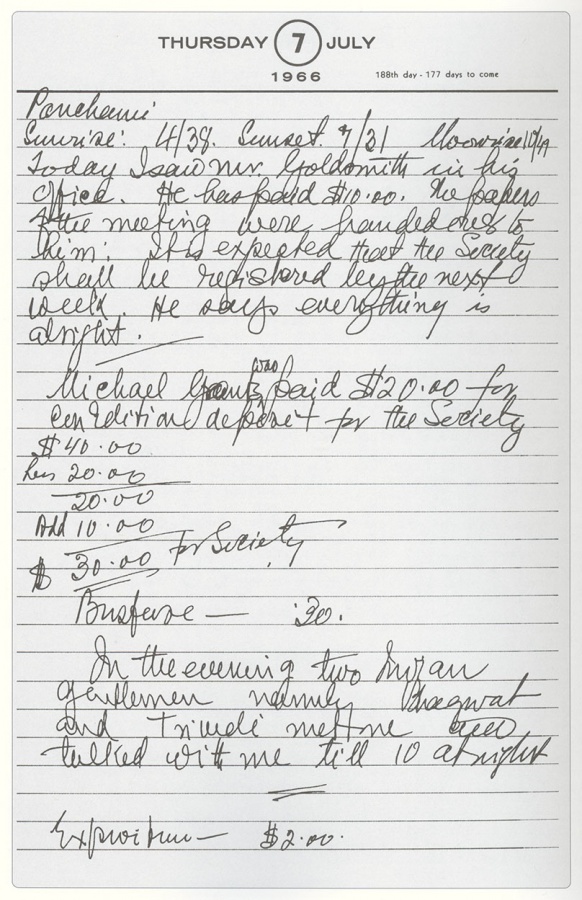 THURSDAY 7 JULY
1966
188th day - 177 days to come
Panchami
Sunrise: 4/38. Sunset. 7/31 Moonrise 10/49
Today I saw Mr. Goldsmith in his
office. He has paid $10.00. The papers
of the meeting were handed over to
him. It is expected that the Society
shall be registered by the next
week. He says everything is
alright.
was
Michael Grant paid $20.00 for
deposit for the Society
$40.00
Less 20.00
20.00
Add 10.00
$ 30.00 for Society
Busfare — .30.
In the evening two Indian
gentlemen namely Bhagwat
and Trivedi met me and
talked with me till 10 at night
$2.00.